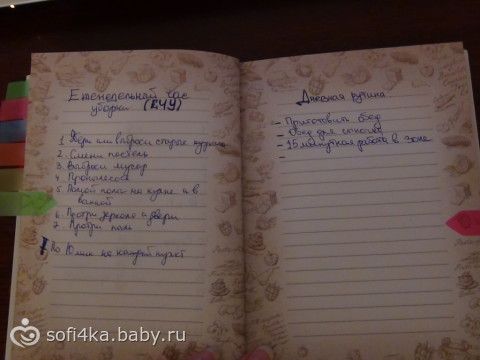 Еженедельный час
уборки (ЕЧУ)
1. Убери или выброси старые журналы
2. Смени постель
3. Выброси мусор
4. Пропылесось
5. Помой полы на кухне и в
ванной
6. Протри зеркала и двери
7. Протри пыль
По 10 мин на каждый пункт
Дневная рутина
- Приготовить обед
- Обед для
- 15 минутная работа в зоне
-
sofi4ka.baby.ru